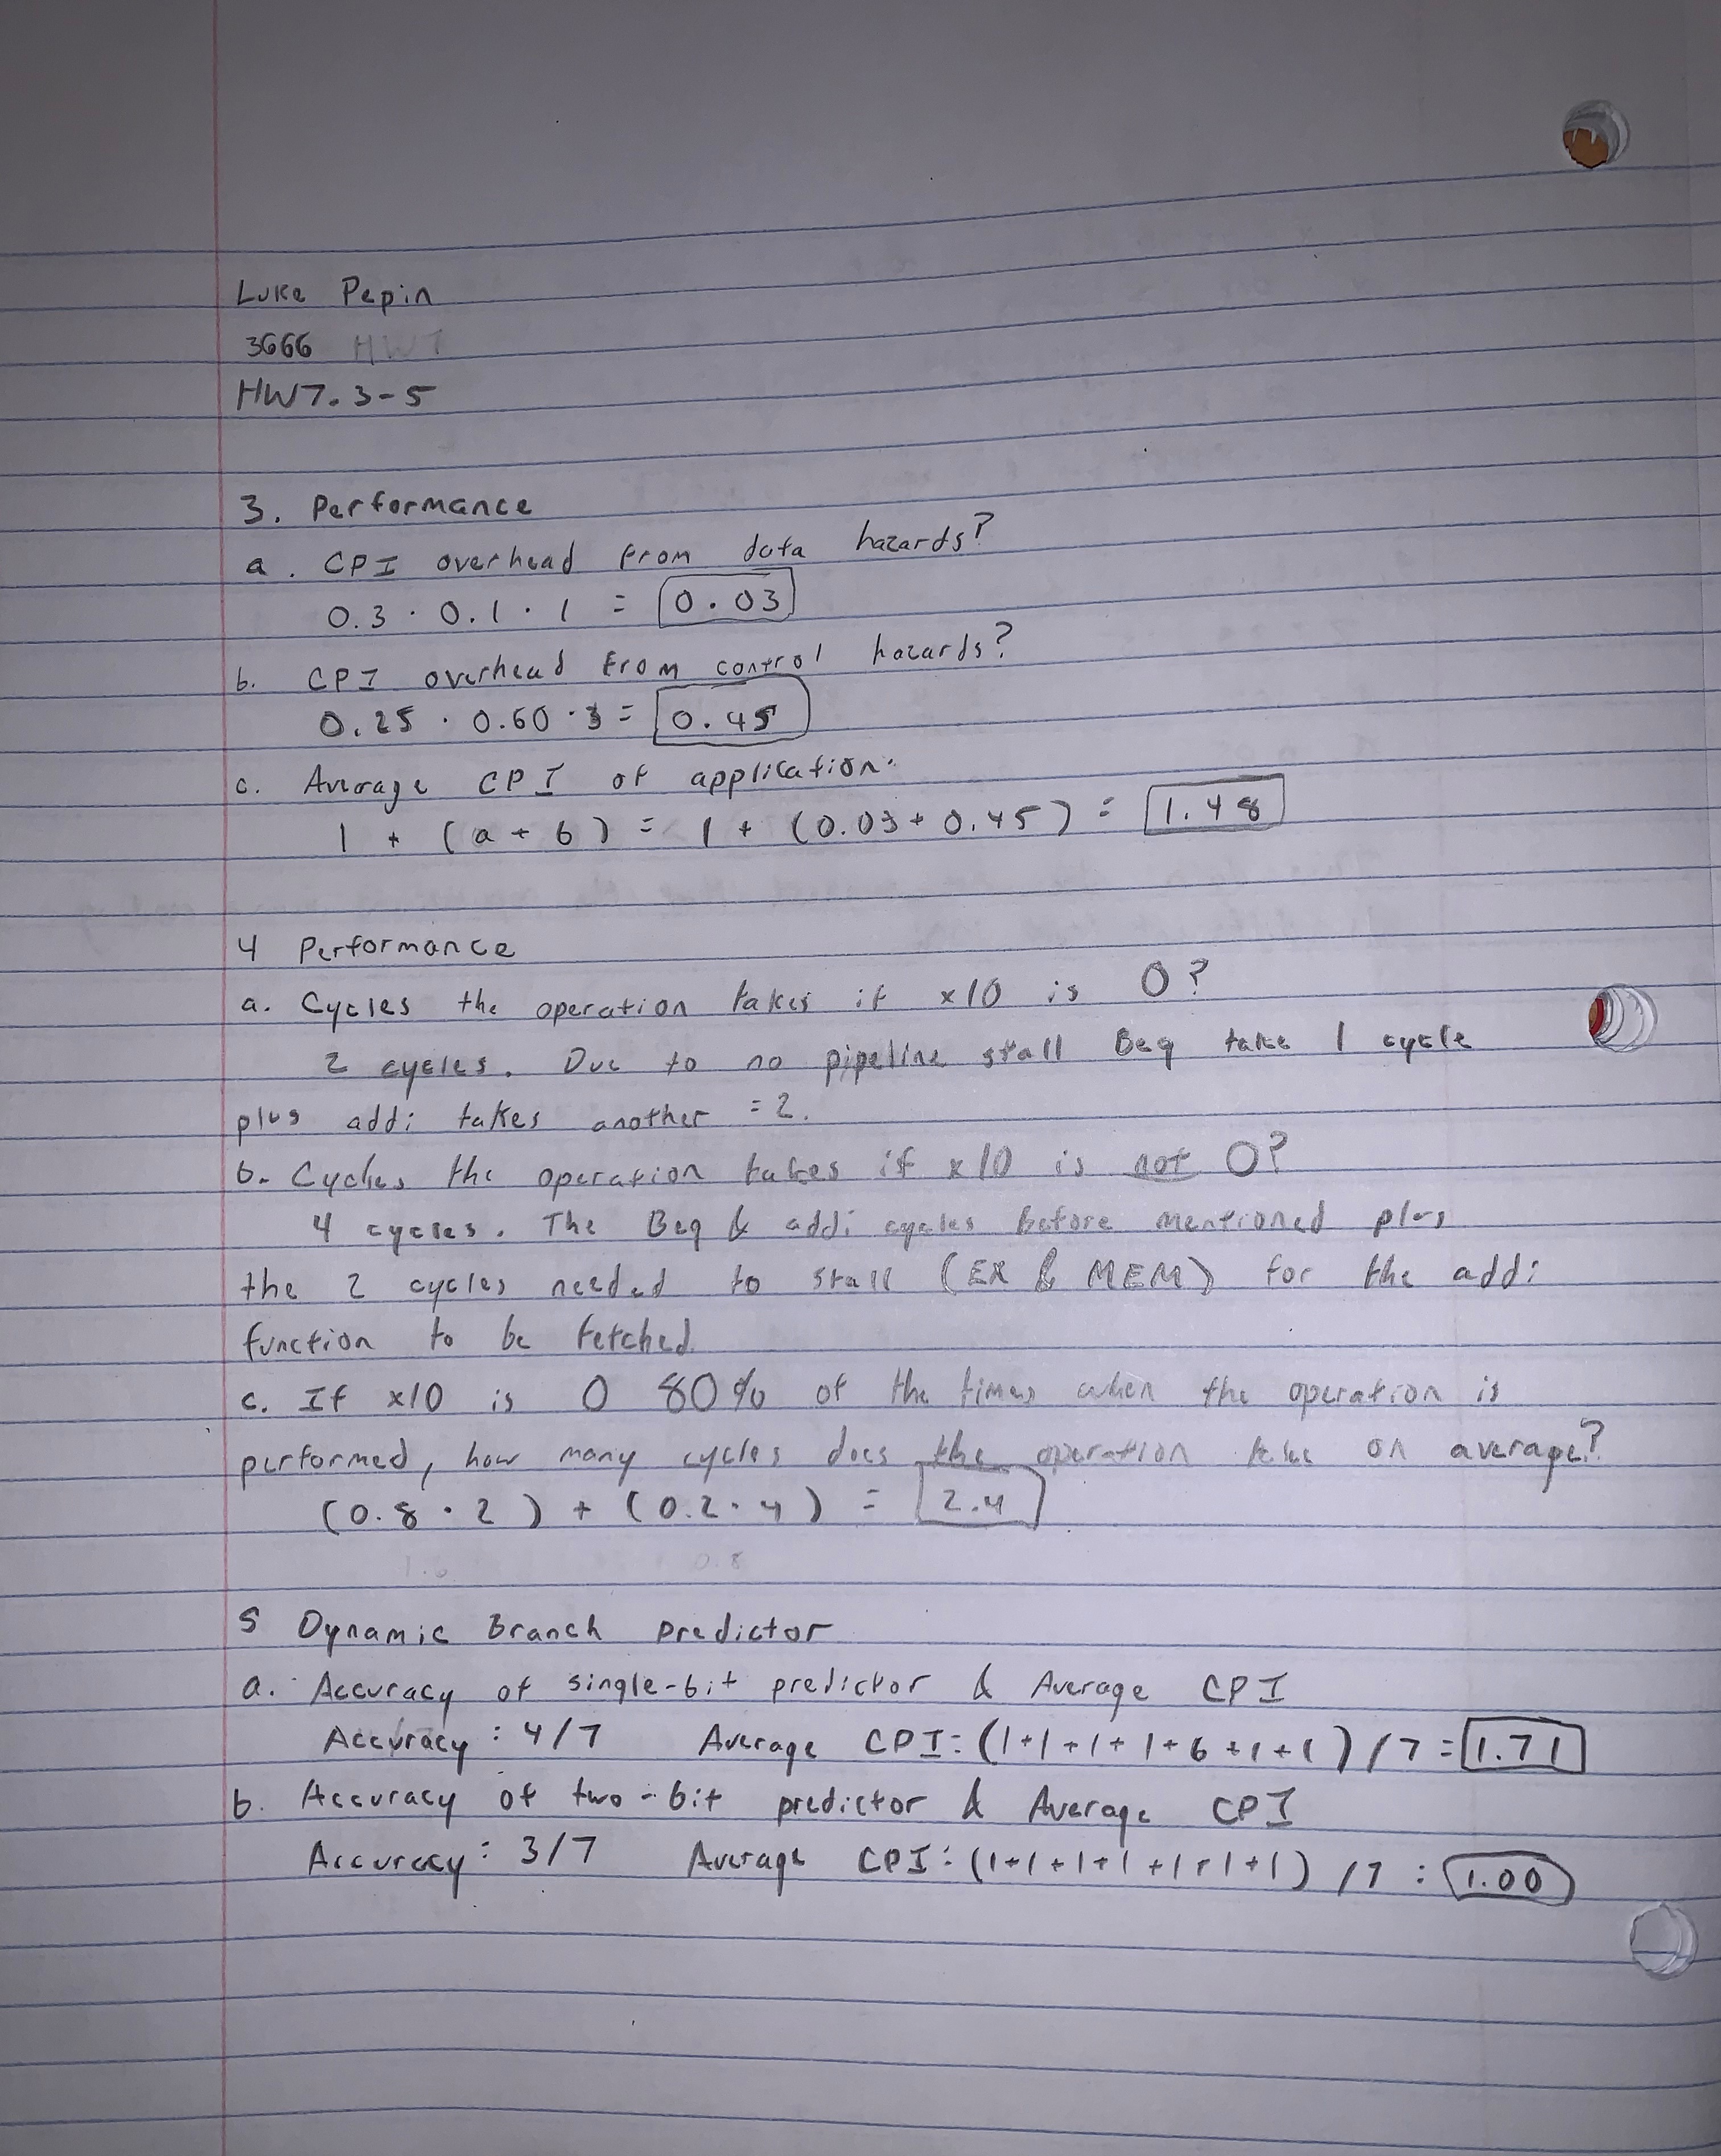 Luke Pepin
3666 HW7
HW7.3-5
3. Performance
a. CPI overhead from data hazards?
0.3 · 0.1 · 1 = 0.03
b. CPI overhead from control hazards?
0.25 · 0.60 · 3 = 0.45
c. Average CPI of application.
1 + (a + b) = 1 + (0.03 + 0.45) = 1.48
4 Performance
a. Cycles the operation takes if x10 is 0?
2 cycles. Due to no pipeline stall Beq take 1 cycle
plus addi takes another = 2.
b. Cycles the operation takes if x10 is not 0?
4 cycles. The Beq & addi cycles before mentioned plus
the 2 cycles needed to stall (EX & MEM) for the addi
function to be fetched
c. If x10 is 0 80% of the times when the operation is
performed, how many cycles does the operation take on average?
(0.8 · 2) + (0.2 · 4) = 2.4
0.8
5 Dynamic Branch Predictor
a. Accuracy of single-bit predictor & Average CPI
Accuracy : 4/7 Average CPI: (1+1+1+1+6+1+1)/7 = 1.71
b. Accuracy of two-bit predictor & Average CPI
Accuracy : 3/7 Average CPI: (1+1+1+1+1+1+1)/7 : 1.00